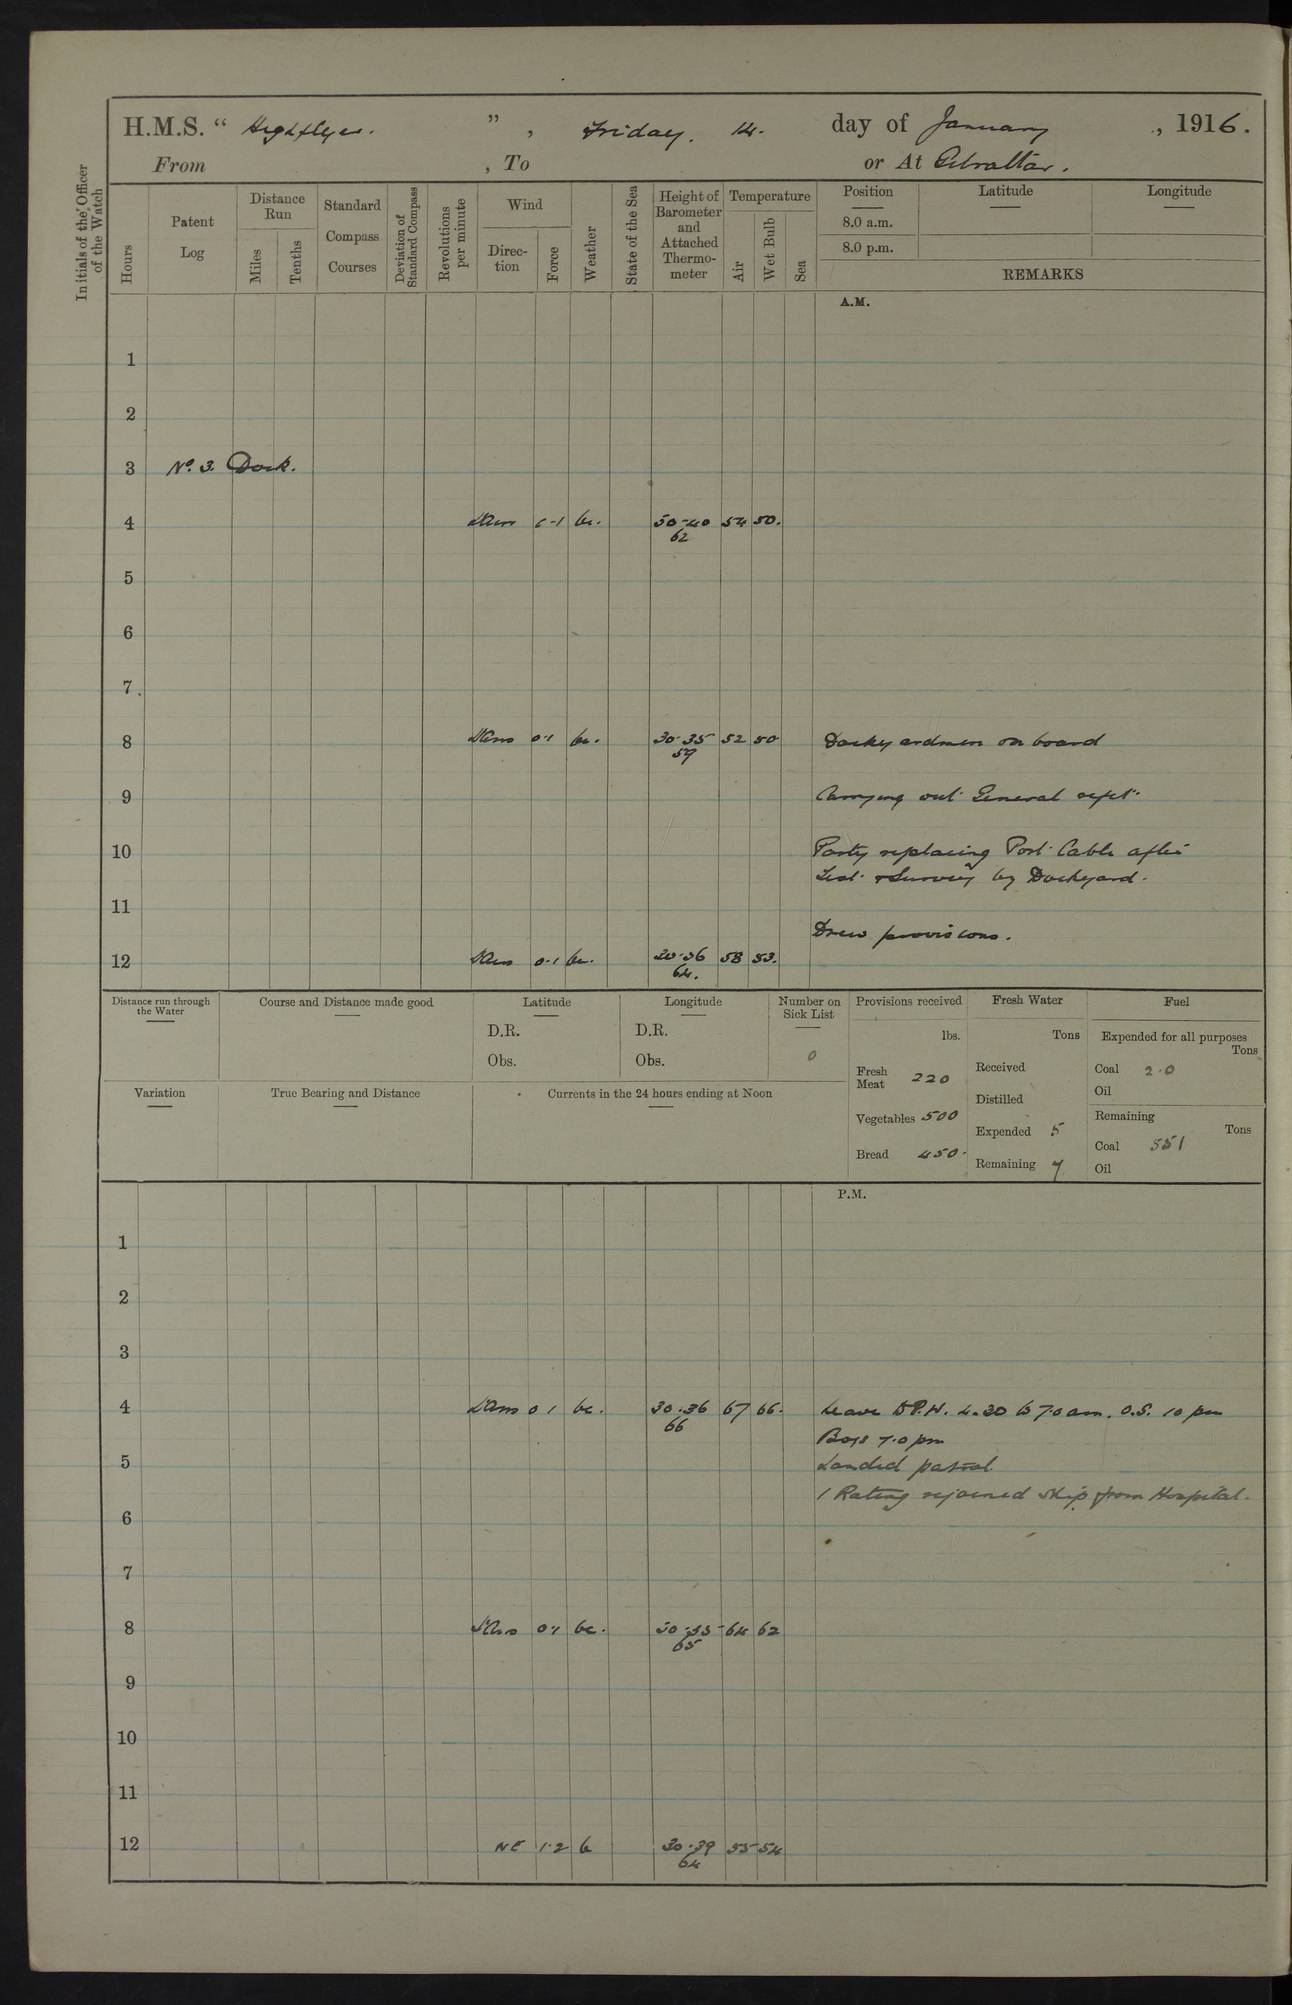 H.M.S. “ Highflyer. ” , Friday. 14. day of January , 1916.
From , To or At Gibraltar.
Initials of the Officer of the Watch
Hours
Patent Log
Distance Run
Miles
Tenths
Standard Compass Courses
Deviation of Standard Compass
Revolutions per minute
Wind
Direction
Force
Weather
State of the Sea
Height of Barometer and Attached Thermometer
Temperature
Air
Wet Bulb
Sea
Position Latitude Longitude
8.0 a.m.
8.0 p.m.
REMARKS
A.M.
1
2
3 No. 3. Dock.
4 0-1 bc. 30-40 54 50.
62
5
6
7
8 0-1 bc. 30-35 52 50 Dockyardmen on board
59
9 Carrying out General refit.
10 Party replacing Port Cable after
Test & Survey by Dockyard.
11
Drew provisions.
12 0-1 bc. 30-36 58 53.
64.
Distance run through the Water
Course and Distance made good
Latitude
D.R.
Obs.
Longitude
D.R.
Obs.
Number on Sick List
0
Provisions received
lbs.
Fresh Meat 220
Vegetables 500
Bread 450.
Fresh Water
Tons
Received
Distilled
Expended 5
Remaining 7
Fuel
Expended for all purposes
Tons
Coal 20
Oil
Remaining
Tons
Coal 551
Oil
Variation
True Bearing and Distance
Currents in the 24 hours ending at Noon
P.M.
1
2
3
4 0 1 bc. 30.36 67 66. Leave to P.W. 4.30 to 7.0 am. O.S. 10 pm
66
Boys 7.0 pm
5 Landed patrol
1 Rating rejoined ship from Hospital.
6
7
8 0-1 bc. 30-35 64 62
65
9
10
11
12 NE 1-2 b 30.39 55 54
64